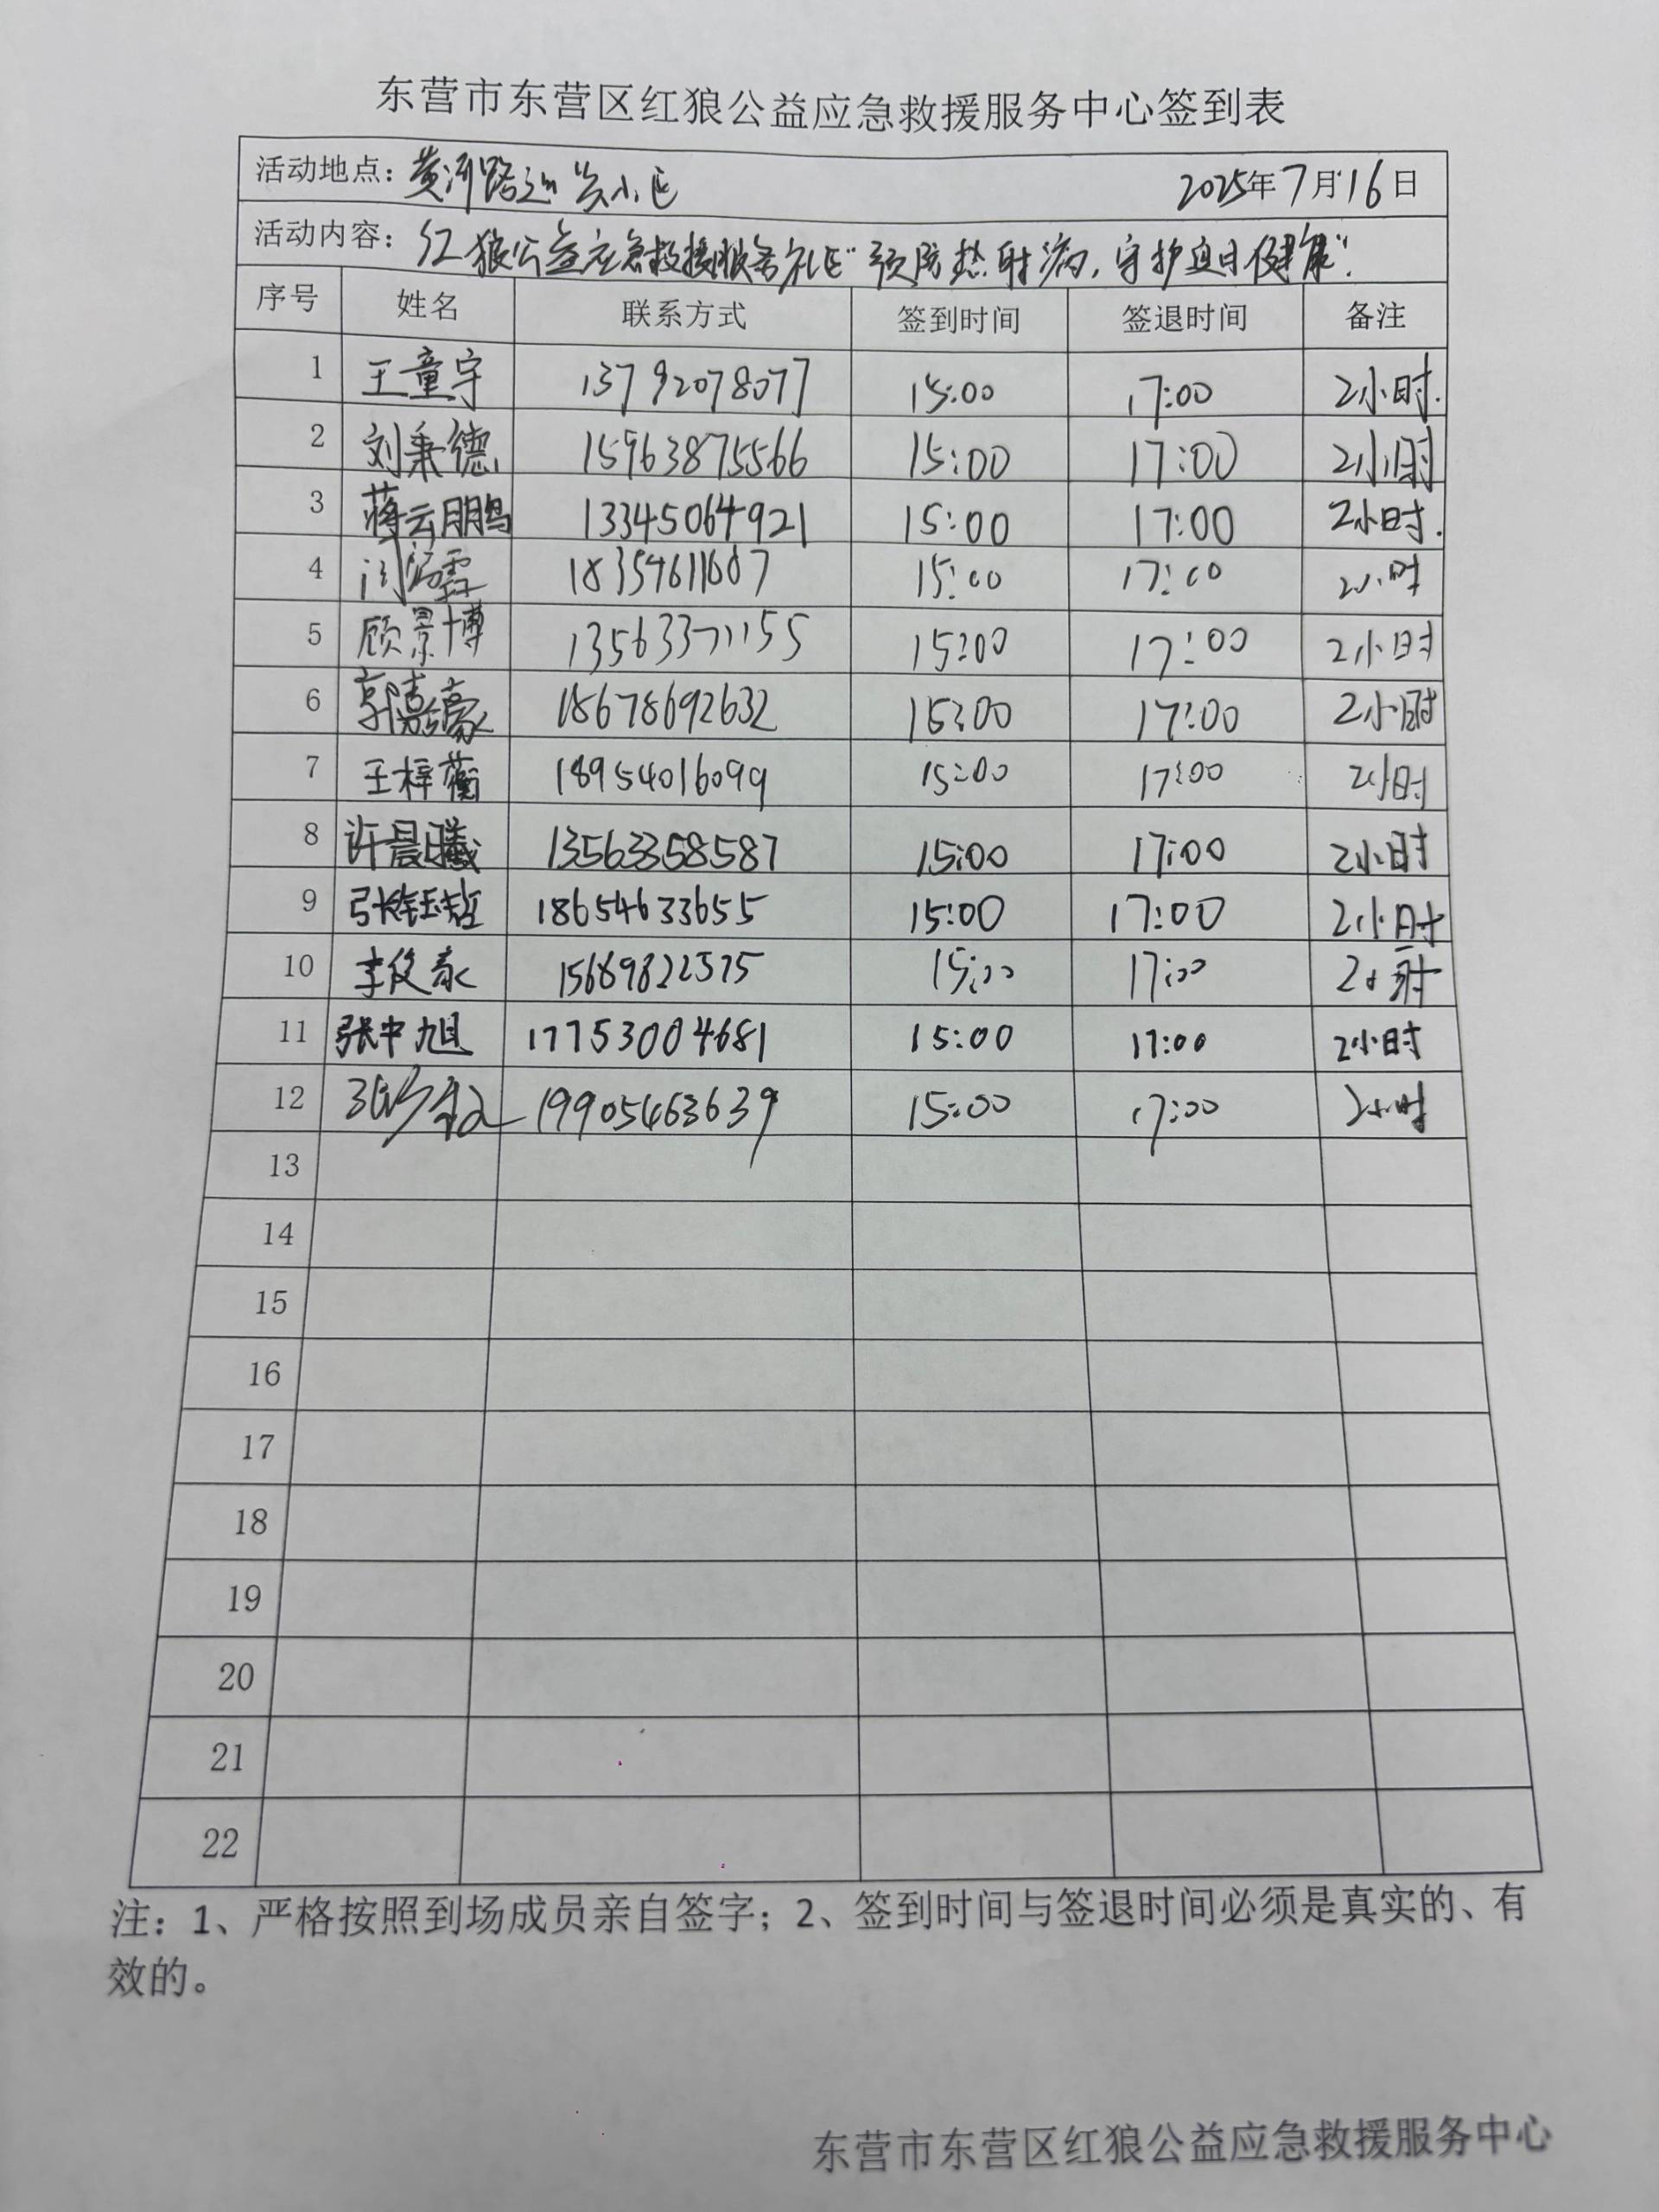 东营市东营区红狼公益应急救援服务中心签到表
活动地点：黄河路 小区 2025年7月16日
活动内容：红狼公益应急救援服务社区"预防热射病，守护夏日健康".
序号 姓名 联系方式 签到时间 签退时间 备注
1 王童宇 13792078077 15:00 17:00 2小时.
2 刘秉德 15963875566 15:00 17:00 2小时
3 蒋云鹏 13345064921 15:00 17:00 2小时.
4 18354611607 15:00 17:00 2小时
5 顾景博 13563371155 15:00 17:00 2小时
6 郭嘉豪 18678692632 15:00 17:00 2小时
7 王梓蘅 18954016099 15:00 17:00 2小时
8 许晨曦 13563358587 15:00 17:00 2小时
9 张钰喆 18654633655 15:00 17:00 2小时
10 李俊泰 15689822575 15:00 17:00 2小时
11 张中旭 17753004681 15:00 17:00 2小时
12 19905463639 15:00 17:00 2小时
13
14
15
16
17
18
19
20
21
22
注：1、严格按照到场成员亲自签字；2、签到时间与签退时间必须是真实的、有
效的。
东营市东营区红狼公益应急救援服务中心